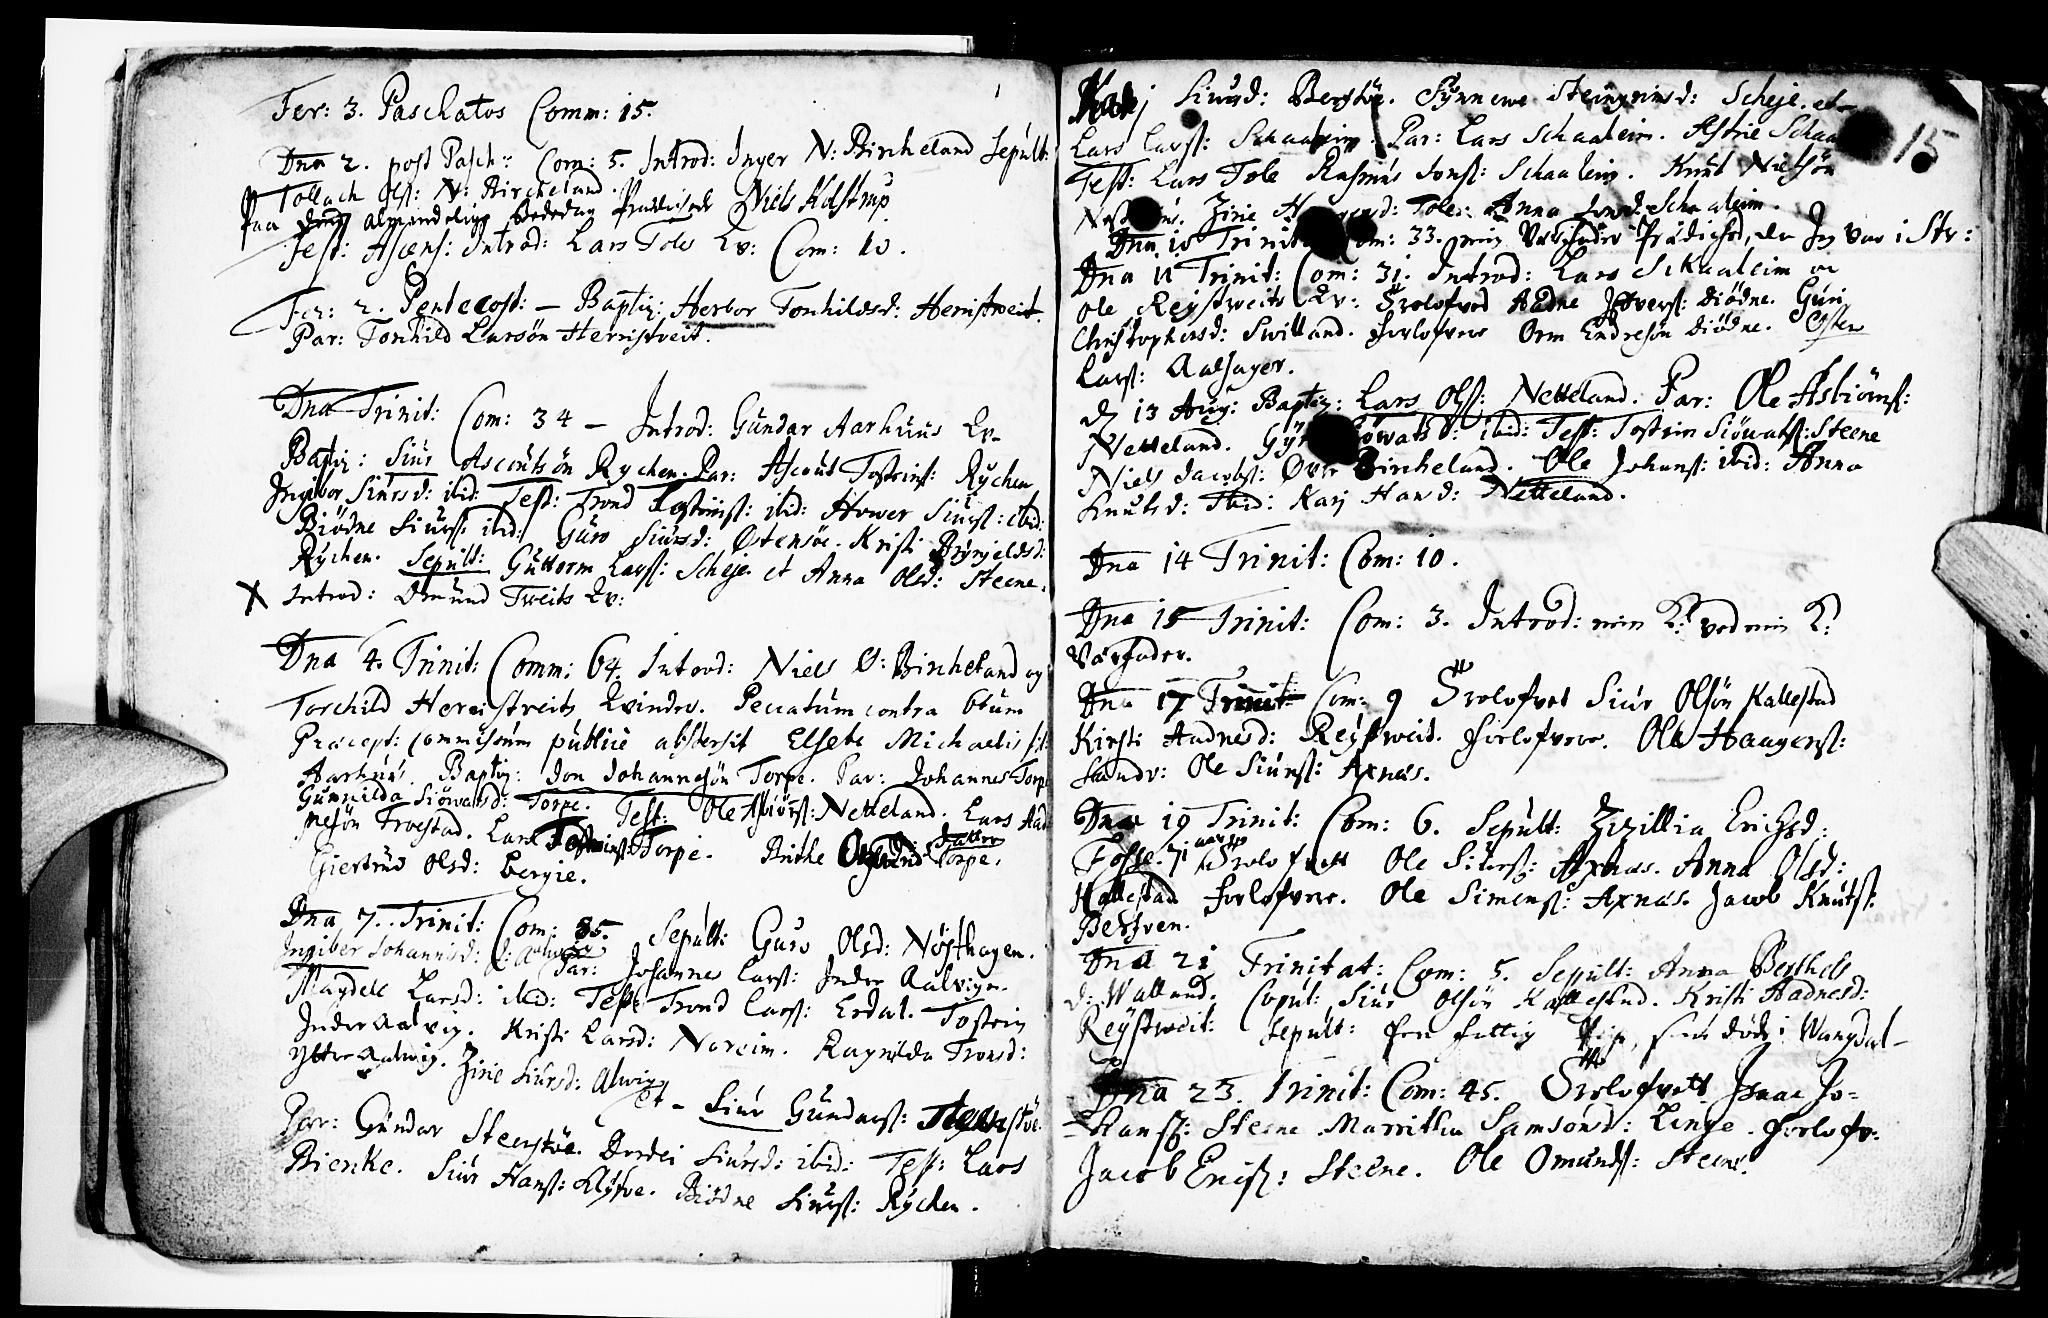 Fer: 3. Paschatos Comm: 15.
Dna 2. post Pasch: Com: 5. Introd: Inger N: Bircheland Sepult:
Tollach Ols: N: Bircheland.
Paa almindelige Bededag Niels Holstrup
Fest: Ascens: Introd: Lars Toles Kv: Com: 10.
Fer: 2. Pentecost: — Baptiz: Herbor Torchildsd: Herristveit.
Par: Torchild Larsön Herristveit.
Dna Trinit: Com: 34 — Introd: Gundar Aarhuus Kv–
Baptiz: Siur Ascoutsön Rychen. Par: Ascout Tosteins: Rychen
Ingibor Siursd: ibid: Test: Trond Tosteins: ibid: Hower Siurs: ibid:
Biödne Siurs: ibid: Guro Siursd: Östensöe. Kristi Brynjeldsd:
Rychen. Sepult: Guttorm Lars: Scheje et Anna Olsd: Steene.
X Introd: Omund Tweits Kv:
Dna 4. Trinit: Comm: 64. Introd: Niels Ö: Bircheland og
Torchild Herristveits Kvinder. Peccatum contra 6tum
Præcept: commissum publice absterfit Elsebe Michaelis fil:
Aarhuus. Baptiz: Jon Johannesön Torpe. Par: Johannes Torpe
Gunnilda Siöwatsd: Torpe. Test: Ole Asbiörs: Netteland. Lars Aad
nesön Troestad. Lars Tosteins: Torpe. Brithe Torpe.
Giertrud Olsd: Bergie.
Dna 7. Trinit: Com: 35. Sepult: Guro Olsd: Nösthagen.
Ingiber Johannisd: I: Aalvig
Par: Johannes Lars: Indre Aalvigen.
Magdele Larsd: ibid: Test: Trond Lars: Erdal. Tostein
Indre Aalvig. Kristi Larsd: Noreim. Ragnilda Tronsd:
Yttre Aalvig. Zirie Siursd: Alvig
et – Siur Gundars: Steenstöe.
Par: Gundar Steenstöe. Dordei Siursd: ibid: Test: Lars
Bienke. Siur Hans: Klyfve. Biödne Siurs: Rychen.
15
Karj Siursd: Berstöe. Synnewe Steingrimsd: Scheje. et
Lars Lars: Schaaleim. Par: Lars Schaaleim. Astrie Schaa
Test: Lars Tole Rasmus Jons: Schaaleim. Knut Nielsön
Zirie Tole. Anna Schaaleim.
Dna 10 Trinit: Com: 33. min Værfader Prædiched, da Jeg var i Str:
Dna 11 Trinit: Com: 31. Introd: Lars Skaaleim oc
Ole Reystweits Kv: Trolofved Aadne Diödne. Guri
Christophersd: Svilland. Forlofvere Orm Endresön Diödne. Osten
Lars: Aalsager.
d 13 Aug: Baptiz: Lars Ols: Netteland. Par: Ole Asbiörns:
Netteland. ibid: Test: Tostein Siöwats: Steene
Niels Jacobs: Öwre Bircheland. Ole Johans: ibid: Anna
Knutsd: Ibid: Karj Hansd: Netteland.
Dna 14 Trinit: Com: 10.
Dna 15 Trinit: Com: 3. Introd: min K: ved min K:
Værfader.
Dna 17 Trinit: Com: 9 Trolofvet Siur Olsön Kallestad
Kirsti Aadnesd: Reystweit. Forlofvere. Ole Haagens:
Sandv: Ole Siurs: Axnæs.
Dna 19 Trinit: Com: 6. Sepult: Zizillia Erichsd:
Fosse. 71 aar Trolofvett Ole Siurs: Axnæs. Anna Olsd:
Kallestad Forlofvere. Ole Simens: Axnæs. Jacob Knuts:
Berven.
Dna 21 Trinitat: Com: 5. Sepult: Anna Berthels
d: Walland. Copul: Siur Olsön Kallestad. Kristi Aadnesd:
Reystweit: Sepult: Een fattig Pige, som döde i Wangdal–
Dna 23. Trinit: Com: 45. Trolofvett Isaac Jo=
=hans: Steene Marritha Samsonsd: Linge. Forlofv:
Jacob Erics: Steene. Ole Omunds: Steene.